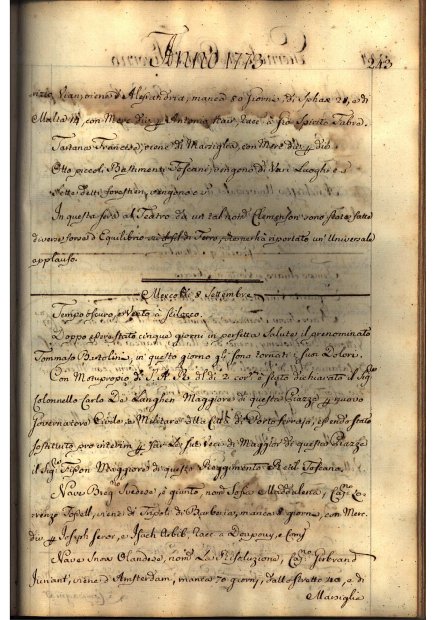 Anno 1773
243
rizio Vianzoiene d'Alessandria, manca 50 Giorni, di Sphax 21, e di
Malta 14, con Merc. div. p. Antonio
Tartana Francese, viene di Marsiglia, con Merc. div. p. div.
Otto piccoli Bastimenti Toscani, vengono da Vari Luoghi e
Sette detti forestieri, vengono
In questa sera al Teatro da un tal nom. Clemenson sono state fatte
diverse forze d'Equilibrio Fil di Ferro, e riportato un' Universale
applauso.
Mercoldì 8 Settembre
Tempo oscuro, e Vento à Scilocco.
Doppo essere stato cinque giorni in perfetta Salute il prenominato
Tommaso Bertolini, in questo giorno gli sono tornati i suoi Dolori.
Con Motuproprio di S. A. R. del dì 2 corr. è stato dichiarato il Sig.
Colonnello Carlo De Langhen Maggiore di questa Piazza p. nuovo
Governatore Civile, e Militare della Città di Porto ferrajo, essendo stato
sostituito pro interim p. far Le sue Veci di Maggior di questa Piazza
il Sig. Maggiore di questo Reggimento Real Toscano.
Nave Svedese, è giunto, nom. Sofia Maddalena, Cap. Lo-
renzo viene di Tripoli di Barberia, manca giorni, con Merc.
div. p. Joseph e Isach Arbib,
Nave Olandese, nom. La Risoluzione, Cap. Gerbrand
viene d'Amsterdam, manca 70 giorni, dallo stretto e di
Marsiglia